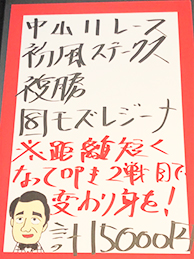 中山11レース
初風ステークス
複勝
⑧モズレジーナ
※距離短く
なって叩き2戦目で
変わり身を!
計15000円